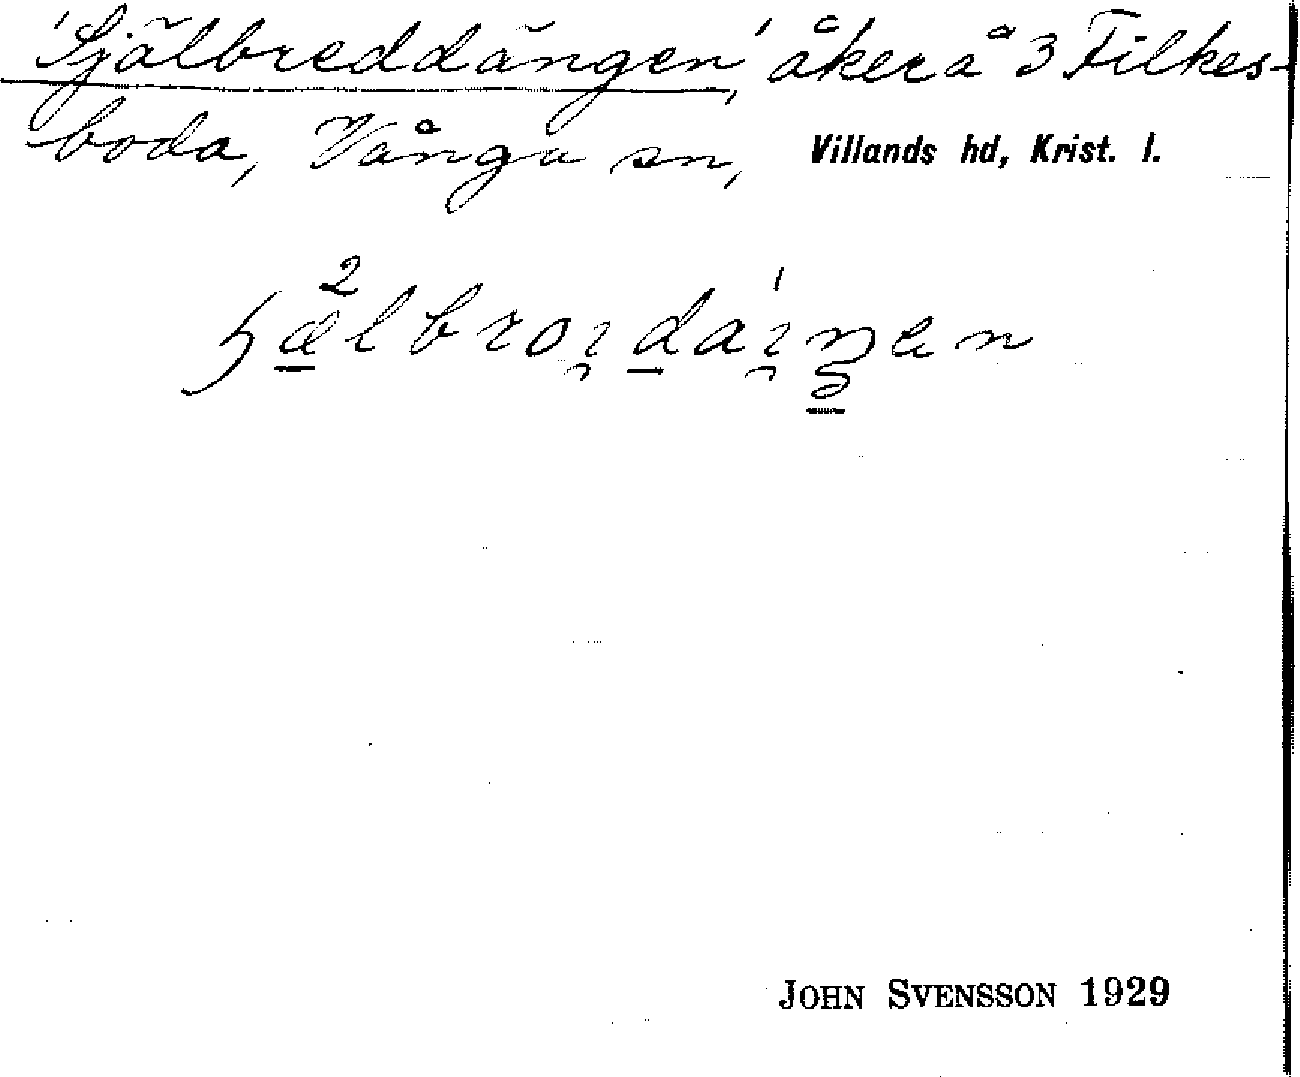 'Själbreddängen', åker å 3 Filkes-
boda, Vånga sn, Villands hd, Krist. l.
JOHN SVENSSON 1929